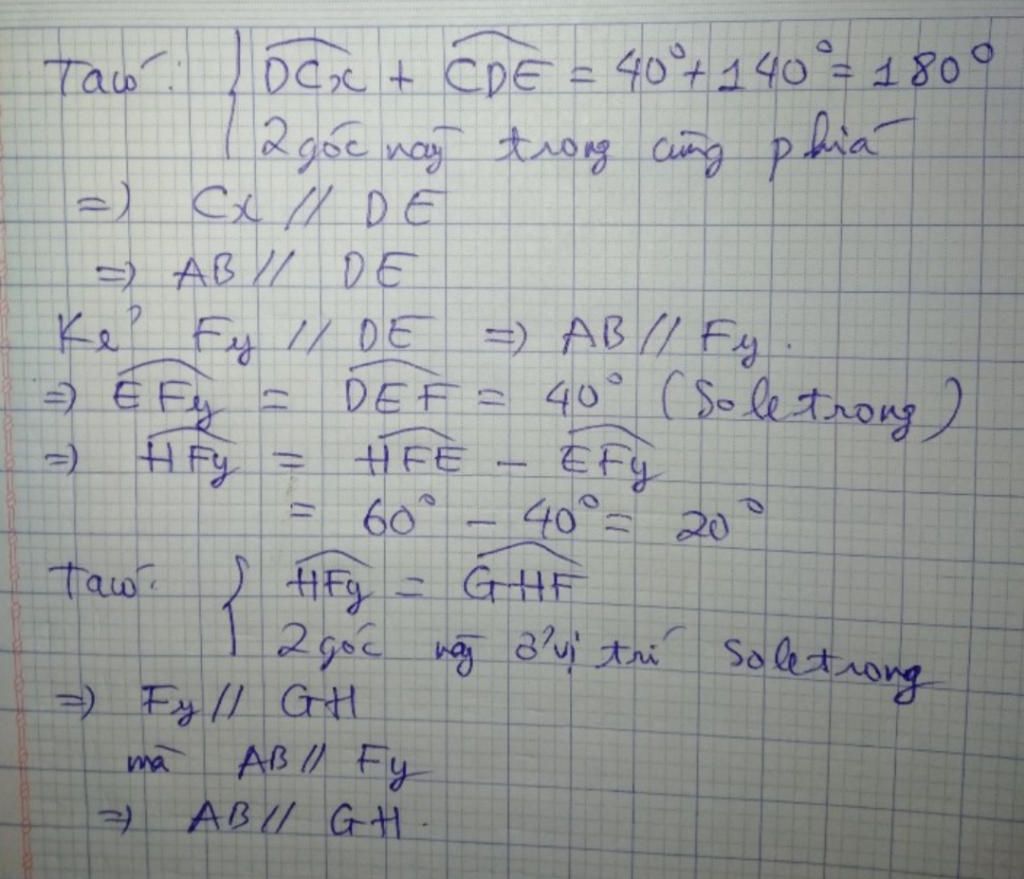 Ta có: { DCx + CDE = 40° + 140° = 180°
2 góc này trong cùng phía
=> Cx // DE
=> AB // DE
Kẻ Fy // DE => AB // Fy.
=> EFy = DEF = 40° (So le trong)
=> HFy = HFE - EFy
= 60° - 40° = 20°
Ta có: { HFy = GHF
2 góc này ở vị trí So le trong
=> Fy // GH
mà AB // Fy
=> AB // GH.